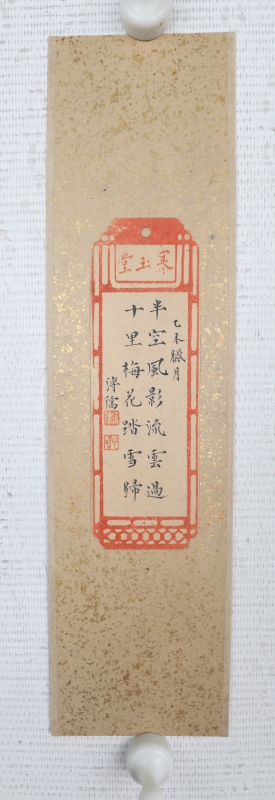 寒玉堂
乙未臘月
半空風影流雲過
十里梅花踏雪歸
溥儒